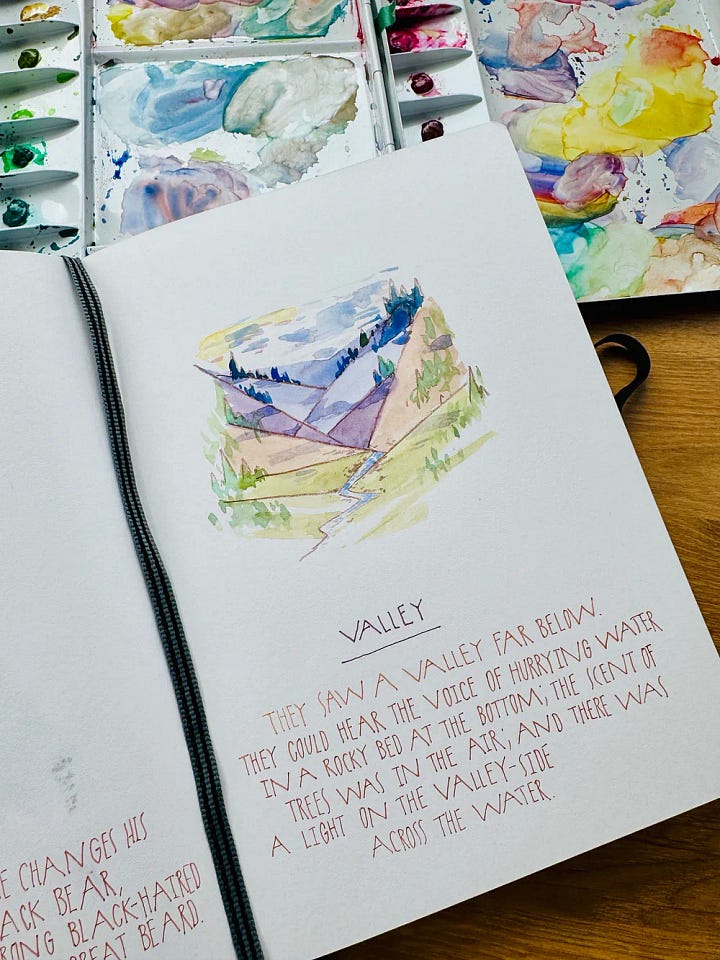 E CHANGES HIS
ACK BEAR,
RONG BLACK-HAIRED
REAT BEARD.
VALLEY
THEY SAW A VALLEY FAR BELOW.
THEY COULD HEAR THE VOICE OF HURRYING WATER
IN A ROCKY BED AT THE BOTTOM; THE SCENT OF
TREES WAS IN THE AIR, AND THERE WAS
A LIGHT ON THE VALLEY-SIDE
ACROSS THE WATER.